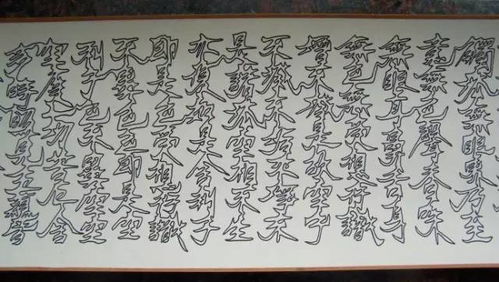 多時照見五蘊皆
空度一切苦厄舍
利子色不異空空
不異色色即是空
即是色受想行識
亦復如是舍利子
是諸法空相不生
不滅不垢不淨不
增不減是故空中
無色無受想行識
無眼耳鼻舌身
意無色聲香味
觸法無眼界乃至